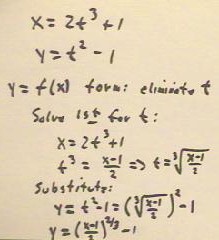 x = 2t³ + 1
y = t² - 1
y = f(x) form: eliminate t
Solve 1st for t:
x = 2t³ + 1
t³ = (x-1)/2 => t = ∛((x-1)/2)
Substitute:
y = t² - 1 = (∛((x-1)/2))² - 1
y = ((x-1)/2)^(2/3) - 1